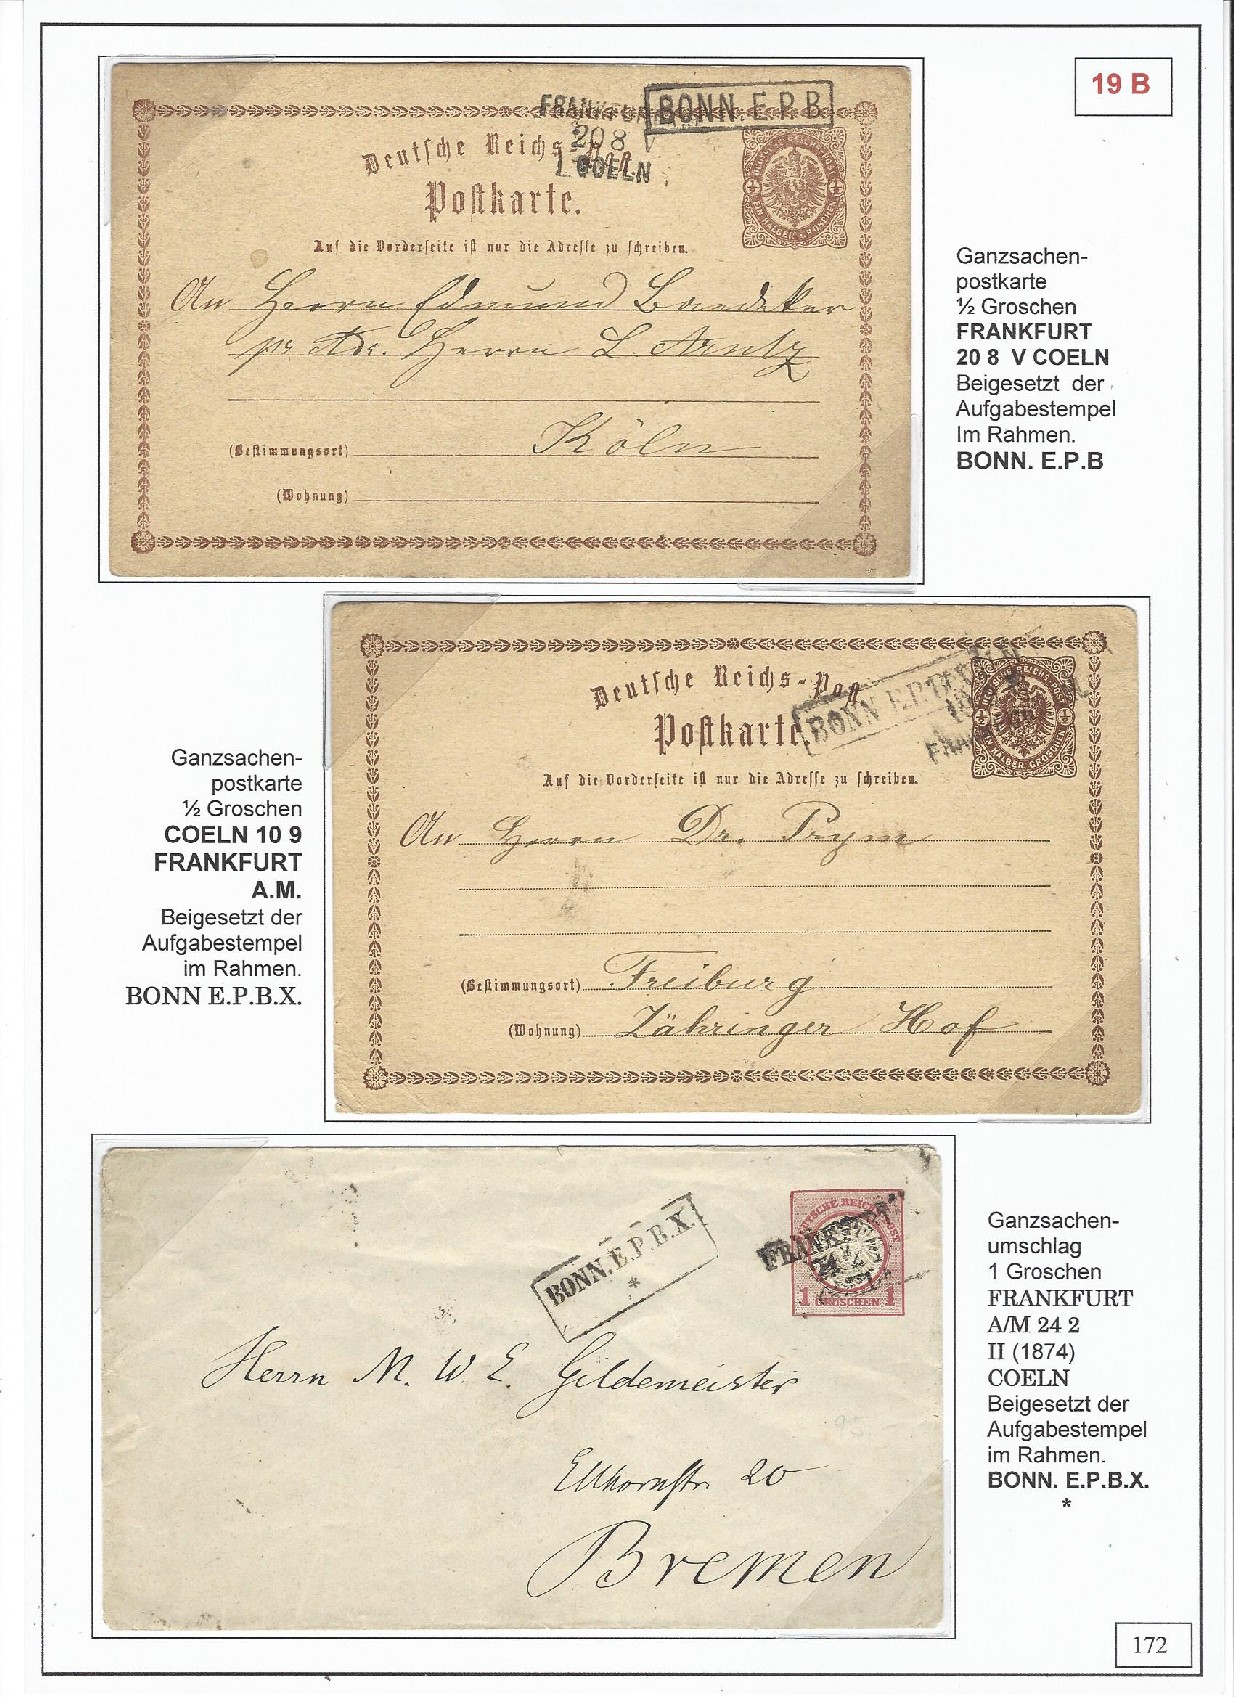 19 B
FRANKFURT
BONN. E.P.B
20 8 V
COELN
Deutsche Reichs-Post
Postkarte.
Auf die Vorderseite ist nur die Adresse zu schreiben.
An Herrn Edmund Baedeker
pr Adr. Herrn L. Arntz
(Bestimmungsort) Köln
(Wohnung)
Ganzsachen-
postkarte
½ Groschen
FRANKFURT
20 8 V COELN
Beigesetzt der
Aufgabestempel
Im Rahmen.
BONN. E.P.B
Ganzsachen-
postkarte
½ Groschen
COELN 10 9
FRANKFURT
A.M.
Beigesetzt der
Aufgabestempel
im Rahmen.
BONN E.P.B.X.
Deutsche Reichs-Post
Postkarte
BONN E.P.
Auf die Vorderseite ist nur die Adresse zu schreiben.
An Herrn Dr. Prym
(Bestimmungsort) Freiburg
(Wohnung) Zähringer Hof
BONN. E.P.B.X.
*
FRANKFURT
24 2
1 GROSCHEN 1
Herrn M. W. E. Gildemeister
Ellhornstr. 20
Bremen
Ganzsachen-
umschlag
1 Groschen
FRANKFURT
A/M 24 2
II (1874)
COELN
Beigesetzt der
Aufgabestempel
im Rahmen.
BONN. E.P.B.X.
*
172